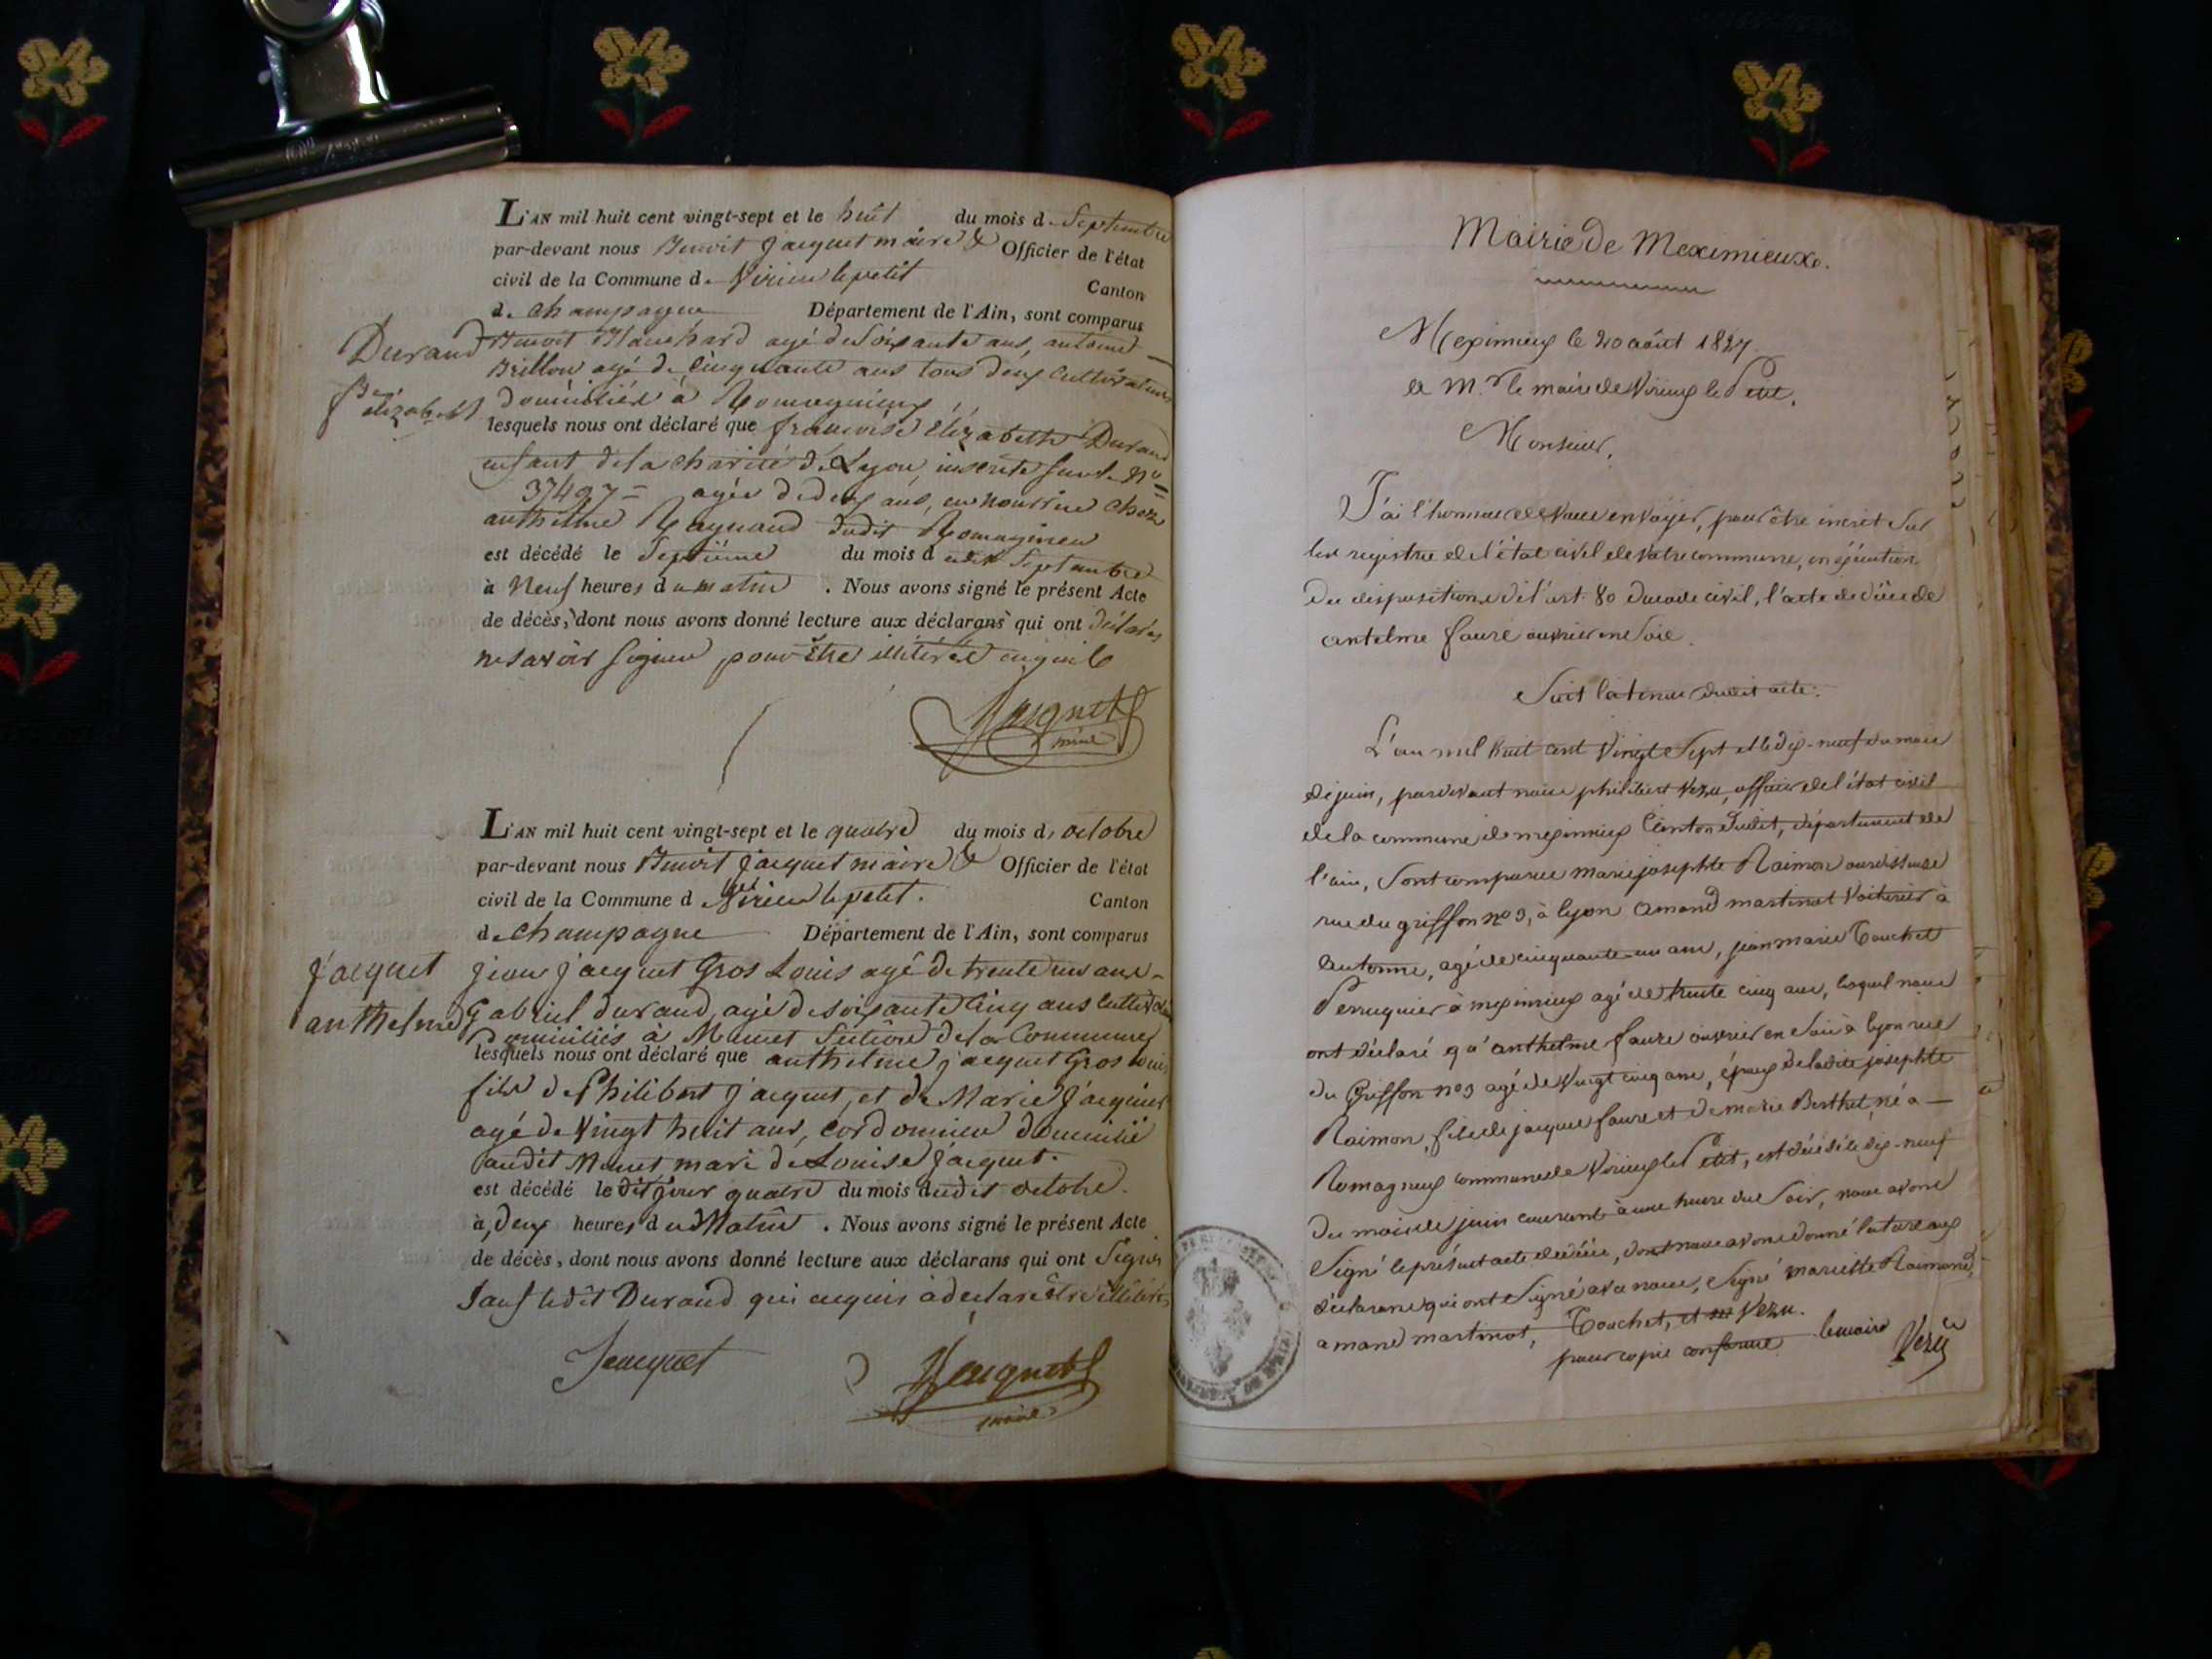 L'AN mil huit cent vingt-sept et le huit du mois de Septembre
par-devant nous Benoit Jacquet maire & Officier de l'état
civil de la Commune de Virieu le petit Canton
de Champagne Département de l'Ain, sont comparus
Durand
elizabeth
Benoit Blanchard agé de Soixante ans, antoine
Brillon agé de Cinquante ans tous deux Cultivateurs
domiciliés à Romagnieux
lesquels nous ont déclaré que françoise Elizabeth Durand
enfant de la charité de Lyon, inscrite sur le No
37497 = agée de deux ans, en nourrice chez
anthelme Raynaud dudit Romagnieu
est décédé le Septiême du mois d udit Septembre
à Neuf heures du matin . Nous avons signé le présent Acte
de décès, dont nous avons donné lecture aux déclarans qui ont déclarés
ne savoir signer pour être illitérés enquis
Jacquet
maire
L'AN mil huit cent vingt-sept et le quatre du mois d, octobre
par-devant nous Benoit Jacquet maire & Officier de l'état
civil de la Commune d Virieu le petit. Canton
de Champagne Département de l'Ain, sont comparus
Jacquet
anthelme
Jean Jacquet Gros Louis agé de trente ans -
Gabriel durand, agé de soixante Cinq ans
Domiciliés à Munet Section de la Commune
lesquels nous ont déclaré que anthelme jacquet Gros Louis
fils de Philibert Jacquet, et de Marie Jacquet
agé de Vingt huit ans, cordonnier domicilié
audit Munet mari de Louise Jacquet.
est décédé le dit jour quatre du mois dudit octobre.
à, deux heures du Matin . Nous avons signé le présent Acte
de décès, dont nous avons donné lecture aux déclarans qui ont Signés
Sauf ledit Durand qui enquis à déclaré être illitérés
Jacquet
Jacquet
maire
Mairie de Meximieux.
Meximieux le 20 août 1827.
a M.r le maire de Virieux le Petit.
Monsieur,
J'ai l'honneur de vous envoyer, pour être inscrit sur
les registres de l'état civil de votre commune, en éxécution
des dispositions de l'art. 80 du code civil, l'acte de décès de
antelme faure ouvrier en Soie.
Suit la teneur dudit acte:
L'an mil huit cent Vingt Sept et le dix-neuf du mois
de juin, pardevant nous philibert Vezu, officier de l'état civil
de la commune de meximieux Canton dudit, département de
l'ain, sont comparus marie josephte Raimon ourdisseuse
rue du griffon no 3, à lyon amand martinot Voiturier à
agé de cinquante un ans, jean marie Touchet
Perruquier à meximieux agé de trente cinq ans, lesquel nous
ont déclaré qu'anthelme faure ouvrier en Soie à lyon rue
du Griffon no 3 agé de Vingt cinq ans, épaux de ladite josephte
Raimon, fils de jacques faure et de marie Berthet, né à —
Romagneux commune de Virieux le Petit, est décédé le dix-neuf
du mois de juin courant à une heure du Soir, nous avons
Signé le présent acte de décès, dont nous avons donné lecture aux
déclarans qui ont Signé avec nous, Signé mariette Raimond,
amand martinot, Touchet, et Vezu.
pour copie conforme le maire Vezu